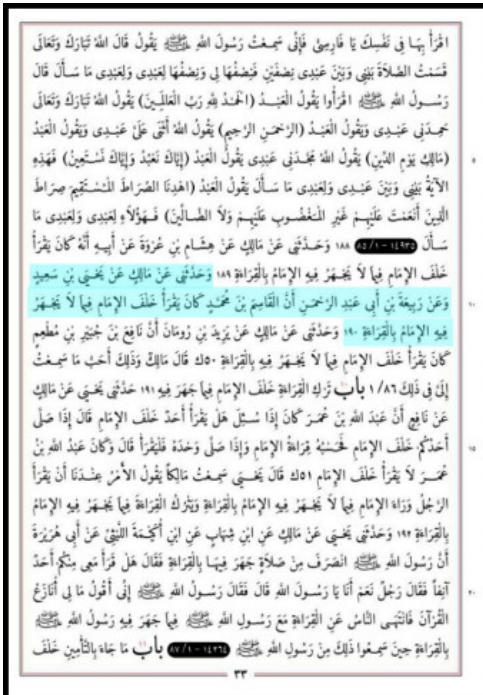 اقْرَأْ بِهَا فِي نَفْسِكَ يَا فَارِسِيُّ فَإِنِّي سَمِعْتُ رَسُولَ اللهِ ﷺ يَقُولُ قَالَ اللهُ تَبَارَكَ وَتَعَالَى
قَسَمْتُ الصَّلَاةَ بَيْنِي وَبَيْنَ عَبْدِي نِصْفَيْنِ فَنِصْفُهَا لِي وَنِصْفُهَا لِعَبْدِي وَلِعَبْدِي مَا سَأَلَ قَالَ
رَسُولُ اللهِ ﷺ اقْرَأُوا يَقُولُ الْعَبْدُ (الْحَمْدُ لِلهِ رَبِّ الْعَالَمِينَ) يَقُولُ اللهُ تَبَارَكَ وَتَعَالَى
حَمِدَنِي عَبْدِي وَيَقُولُ الْعَبْدُ (الرَّحْمَنِ الرَّحِيمِ) يَقُولُ اللهُ أَثْنَى عَلَيَّ عَبْدِي وَيَقُولُ الْعَبْدُ
(مَالِكِ يَوْمِ الدِّينِ) يَقُولُ اللهُ مَجَّدَنِي عَبْدِي يَقُولُ الْعَبْدُ (إِيَّاكَ نَعْبُدُ وَإِيَّاكَ نَسْتَعِينُ) فَهَذِهِ ٥
الْآيَةُ بَيْنِي وَبَيْنَ عَبْدِي وَلِعَبْدِي مَا سَأَلَ يَقُولُ الْعَبْدُ (اهْدِنَا الصِّرَاطَ الْمُسْتَقِيمَ صِرَاطَ
الَّذِينَ أَنْعَمْتَ عَلَيْهِمْ غَيْرِ الْمَغْضُوبِ عَلَيْهِمْ وَلَا الضَّالِّينَ) فَهَؤُلَاءِ لِعَبْدِي وَلِعَبْدِي مَا
سَأَلَ ١٤٩٣٥ - ٨٥/١ ١٨٨ وَحَدَّثَنِي عَنْ مَالِكٍ عَنْ هِشَامِ بْنِ عُرْوَةَ عَنْ أَبِيهِ أَنَّهُ كَانَ يَقْرَأُ
خَلْفَ الْإِمَامِ فِيمَا لَا يَجْهَرُ فِيهِ الْإِمَامُ بِالْقِرَاءَةِ ١٨٩ وَحَدَّثَنِي عَنْ مَالِكٍ عَنْ يَحْيَى بْنِ سَعِيدٍ
وَعَنْ رَبِيعَةَ بْنِ أَبِي عَبْدِ الرَّحْمَنِ أَنَّ الْقَاسِمَ بْنَ مُحَمَّدٍ كَانَ يَقْرَأُ خَلْفَ الْإِمَامِ فِيمَا لَا يَجْهَرُ ١٠
فِيهِ الْإِمَامُ بِالْقِرَاءَةِ ١٩٠ وَحَدَّثَنِي عَنْ مَالِكٍ عَنْ يَزِيدَ بْنِ رُومَانَ أَنَّ نَافِعَ بْنَ جُبَيْرِ بْنِ مُطْعِمٍ
كَانَ يَقْرَأُ خَلْفَ الْإِمَامِ فِيمَا لَا يَجْهَرُ فِيهِ بِالْقِرَاءَةِ ٥٠ك قَالَ مَالِكٌ وَذَلِكَ أَحَبُّ مَا سَمِعْتُ
إِلَيَّ فِي ذَلِكَ ٨٦/١ بابُ تَرْكِ الْقِرَاءَةِ خَلْفَ الْإِمَامِ فِيمَا جَهَرَ فِيهِ ١٩١ حَدَّثَنِي يَحْيَى عَنْ مَالِكٍ
عَنْ نَافِعٍ أَنَّ عَبْدَ اللهِ بْنَ عُمَرَ كَانَ إِذَا سُئِلَ هَلْ يَقْرَأُ أَحَدٌ خَلْفَ الْإِمَامِ قَالَ إِذَا صَلَّى
أَحَدُكُمْ خَلْفَ الْإِمَامِ فَحَسْبُهُ قِرَاءَةُ الْإِمَامِ وَإِذَا صَلَّى وَحْدَهُ فَلْيَقْرَأْ قَالَ وَكَانَ عَبْدُ اللهِ بْنُ ١٥
عُمَرَ لَا يَقْرَأُ خَلْفَ الْإِمَامِ ٥١ك قَالَ يَحْيَى سَمِعْتُ مَالِكًا يَقُولُ الْأَمْرُ عِنْدَنَا أَنْ يَقْرَأَ
الرَّجُلُ وَرَاءَ الْإِمَامِ فِيمَا لَا يَجْهَرُ فِيهِ الْإِمَامُ بِالْقِرَاءَةِ وَيَتْرُكُ الْقِرَاءَةَ فِيمَا يَجْهَرُ فِيهِ الْإِمَامُ
بِالْقِرَاءَةِ ١٩٢ وَحَدَّثَنِي يَحْيَى عَنْ مَالِكٍ عَنِ ابْنِ شِهَابٍ عَنِ ابْنِ أُكَيْمَةَ اللَّيْثِيِّ عَنْ أَبِي هُرَيْرَةَ
أَنَّ رَسُولَ اللهِ ﷺ انْصَرَفَ مِنْ صَلَاةٍ جَهَرَ فِيهَا بِالْقِرَاءَةِ فَقَالَ هَلْ قَرَأَ مَعِي مِنْكُمْ أَحَدٌ
آنِفًا فَقَالَ رَجُلٌ نَعَمْ أَنَا يَا رَسُولَ اللهِ قَالَ فَقَالَ رَسُولُ اللهِ ﷺ إِنِّي أَقُولُ مَا لِي أُنَازَعُ ٢٠
الْقُرْآنَ فَانْتَهَى النَّاسُ عَنِ الْقِرَاءَةِ مَعَ رَسُولِ اللهِ ﷺ فِيمَا جَهَرَ فِيهِ رَسُولُ اللهِ ﷺ
بِالْقِرَاءَةِ حِينَ سَمِعُوا ذَلِكَ مِنْ رَسُولِ اللهِ ﷺ ١٤٢٦٤ - ٨٧/١ بابُ مَا جَاءَ بِالتَّأْمِينِ خَلْفَ
٣٣